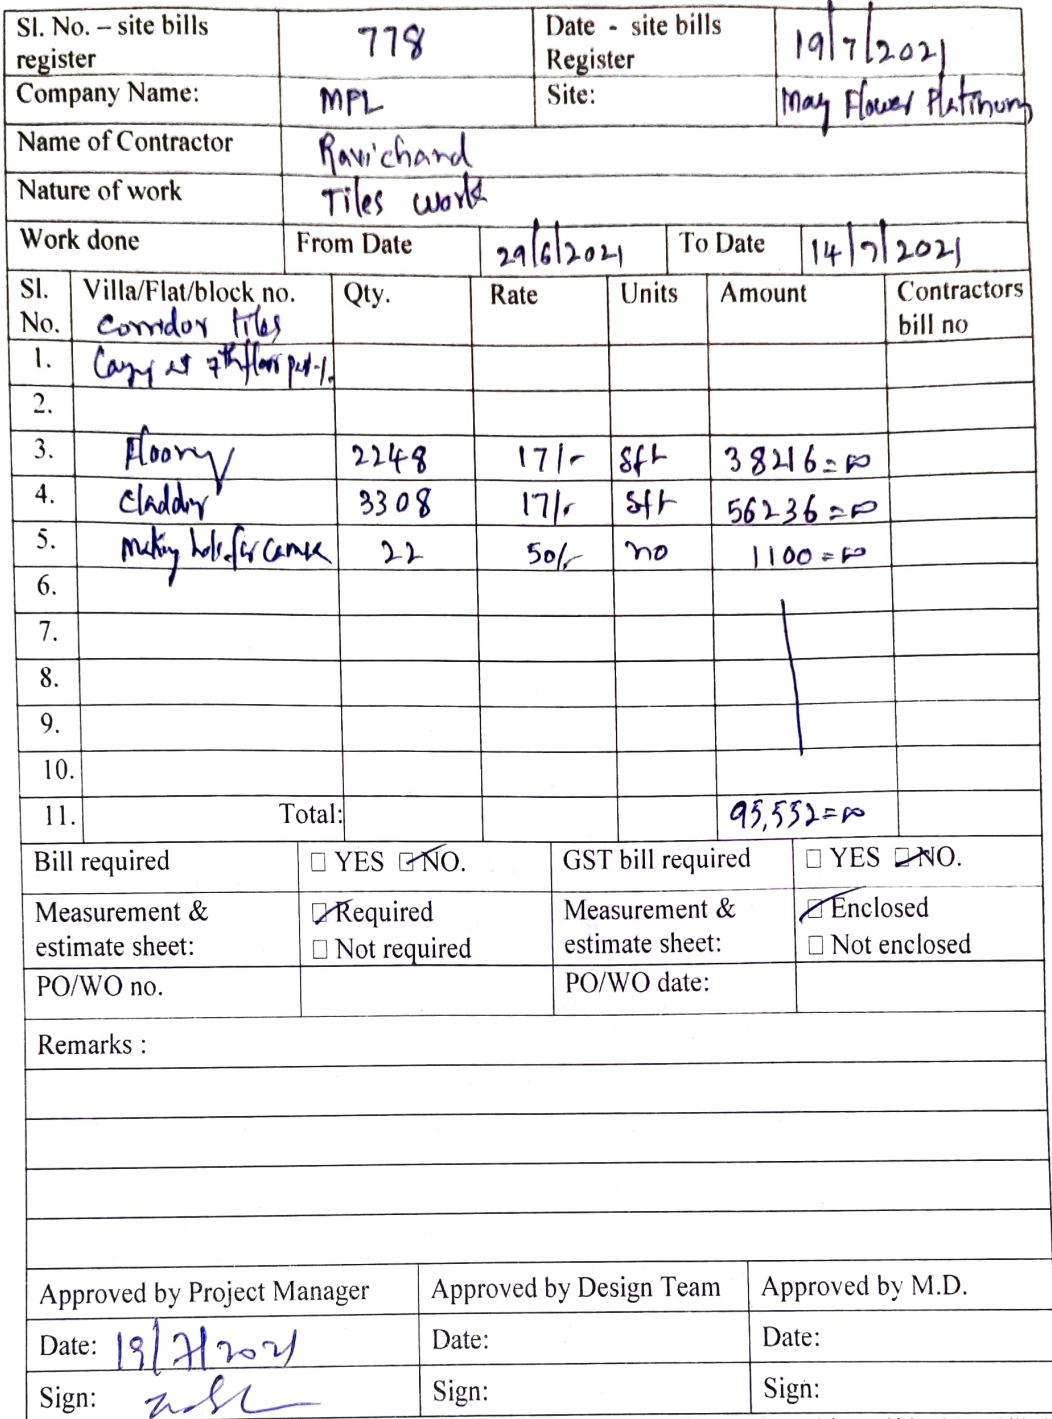 Sl. No. – site bills register 778 Date - site bills Register 19/7/2021
Company Name: MPL Site: May Flower Platinum
Name of Contractor Ravichand
Nature of work Tiles work
Work done From Date 29/6/2021 To Date 14/7/2021
Sl. No. Villa/Flat/block no. Qty. Rate Units Amount Contractors bill no
Corridor tiles
1. at 7th floor
2.
3. Flooring 2248 17/- sft 38216=00
4. Cladding 3308 17/- sft 56236=00
5. Making hole for 22 50/- no 1100=00
6.
7.
8.
9.
10.
11. Total: 95,552=00
Bill required YES NO. GST bill required YES NO.
Measurement & estimate sheet: Required Measurement & estimate sheet: Enclosed
Not required Not enclosed
PO/WO no. PO/WO date:
Remarks :
Approved by Project Manager Approved by Design Team Approved by M.D.
Date: 19/7/2021 Date: Date:
Sign: Sign: Sign: